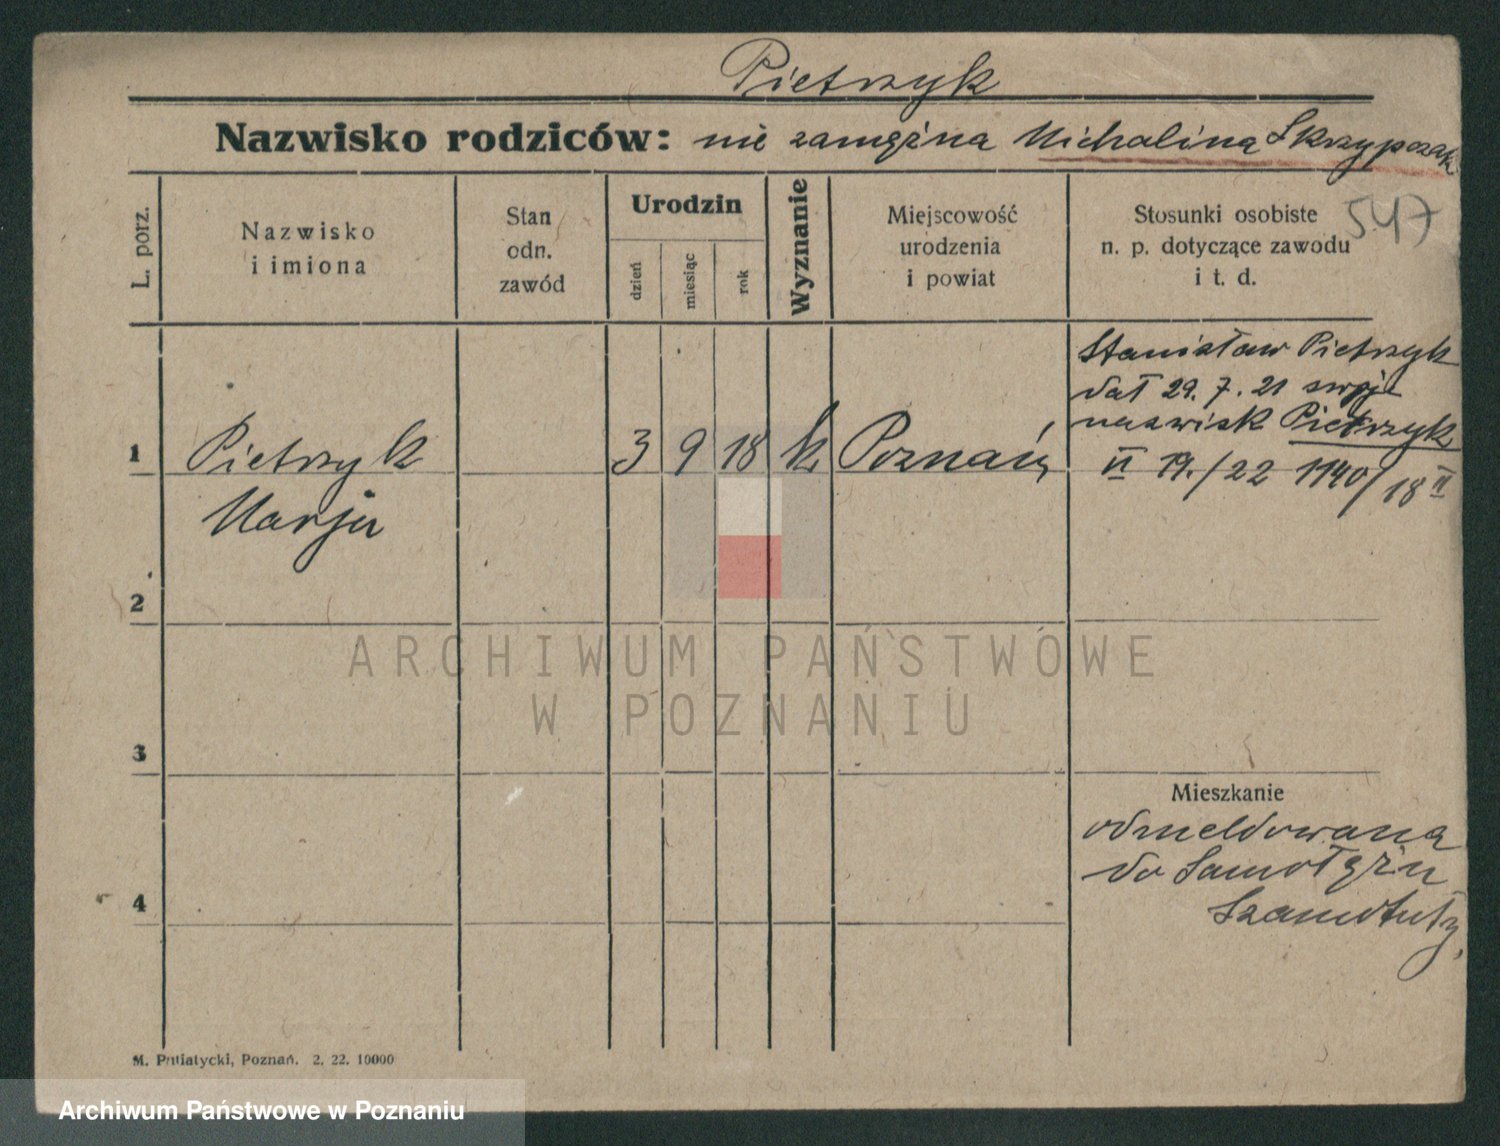 Pietrzyk
Nazwisko rodziców: nie zamężna Michalina Skrzypczak
547
L. porz.
Nazwisko
i imiona
Stan
odn.
zawód
Urodzin
dzień
miesiąc
rok
Wyznanie
Miejscowość
urodzenia
i powiat
Stosunki osobiste
n. p. dotyczące zawodu
i t. d.
Stanisław Pietrzyk
dał 29. 7. 21 swoje
nazwisk Pietrzyk
II 19./22 1140/18 II
1
Pietrzyk
Marja
3 9 18 k Poznań
2
3
4
Mieszkanie
odmeldowana
do Samołęża
Szamotuły
ARCHIWUM PAŃSTWOWE
W POZNANIU
M. Putiatycki, Poznań. 2. 22. 10000
Archiwum Państwowe w Poznaniu